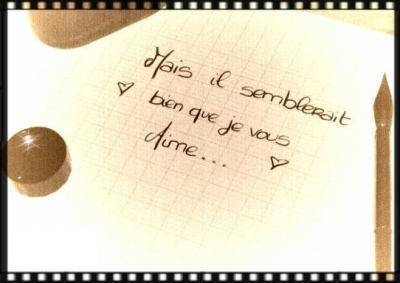 Mais il semblerait
bien que je vous
Aime...